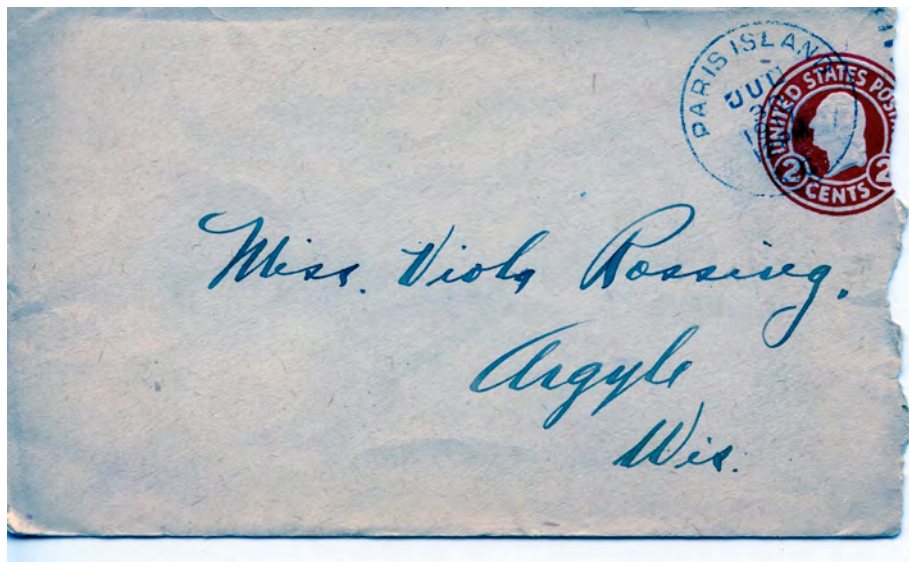 PARIS ISLAND
UNITED STATES
2 CENTS 2
Miss. Viola Rossing.
Argyle
Wis.